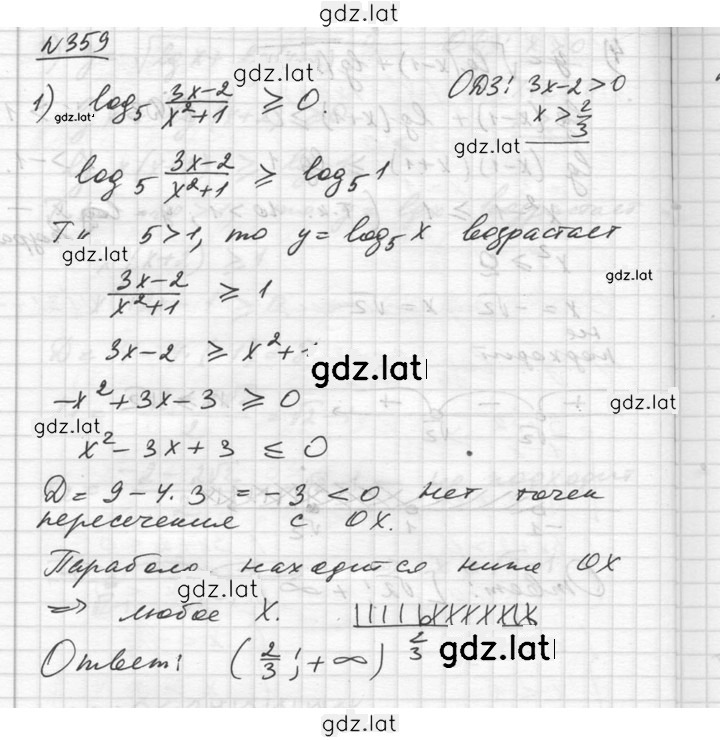 gdz.latl
№359
gdz.latl
1) log₅ (3x-2)/(x²+1) ⩾ 0.
gdz.latl
ОДЗ: 3x-2>0
x>2/3
gdz.latl
log₅ (3x-2)/(x²+1) ⩾ log₅1
Т.к 5>1, то y=log₅x возрастает
gdz.latl
gdz.latl
(3x-2)/(x²+1) ⩾ 1
3x-2 ⩾ x²+
gdz.latl
-x²+3x-3 ⩾ 0
gdz.latl
gdz.latl
x²-3x+3 ≤ 0
D=9-4.3=-3<0 нет точек
пересечения с OX.
Парабола находится ниже OX
gdz.latl
=> любое x.
2/3
Ответ: (2/3; +∞)
gdz.latl
gdz.latl